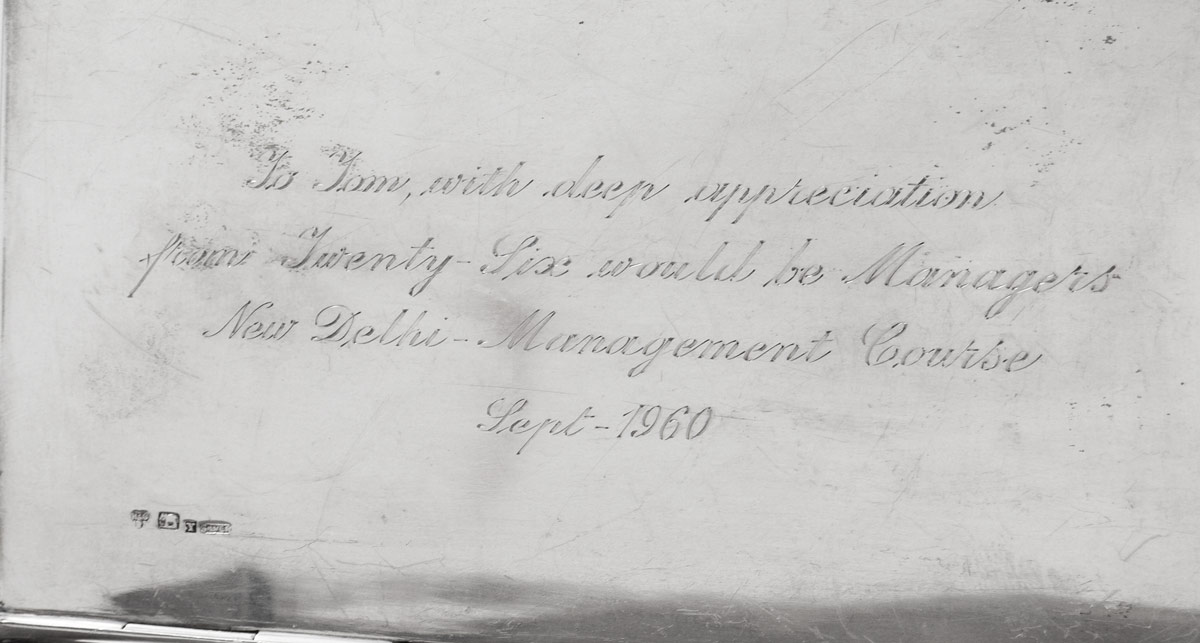 To Tom, with deep appreciation
from Twenty-Six would be Managers
New Delhi-Management Course
Sept-1960
SILVER